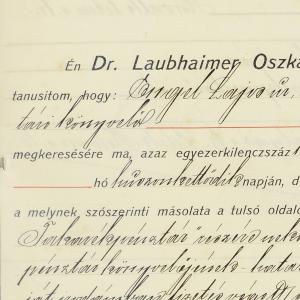 Én Dr. Laubhaimer Oszká
tanusitom, hogy: Engel Lajos úr,
táró könyvelő
megkeresésére ma, azaz egyezerkilenczszáz
hó huszonkettődik napján, d
a melynek, szószerinti másolata a tulsó oldalo
Takarékpénztár részére
pénztár könyvelőjének